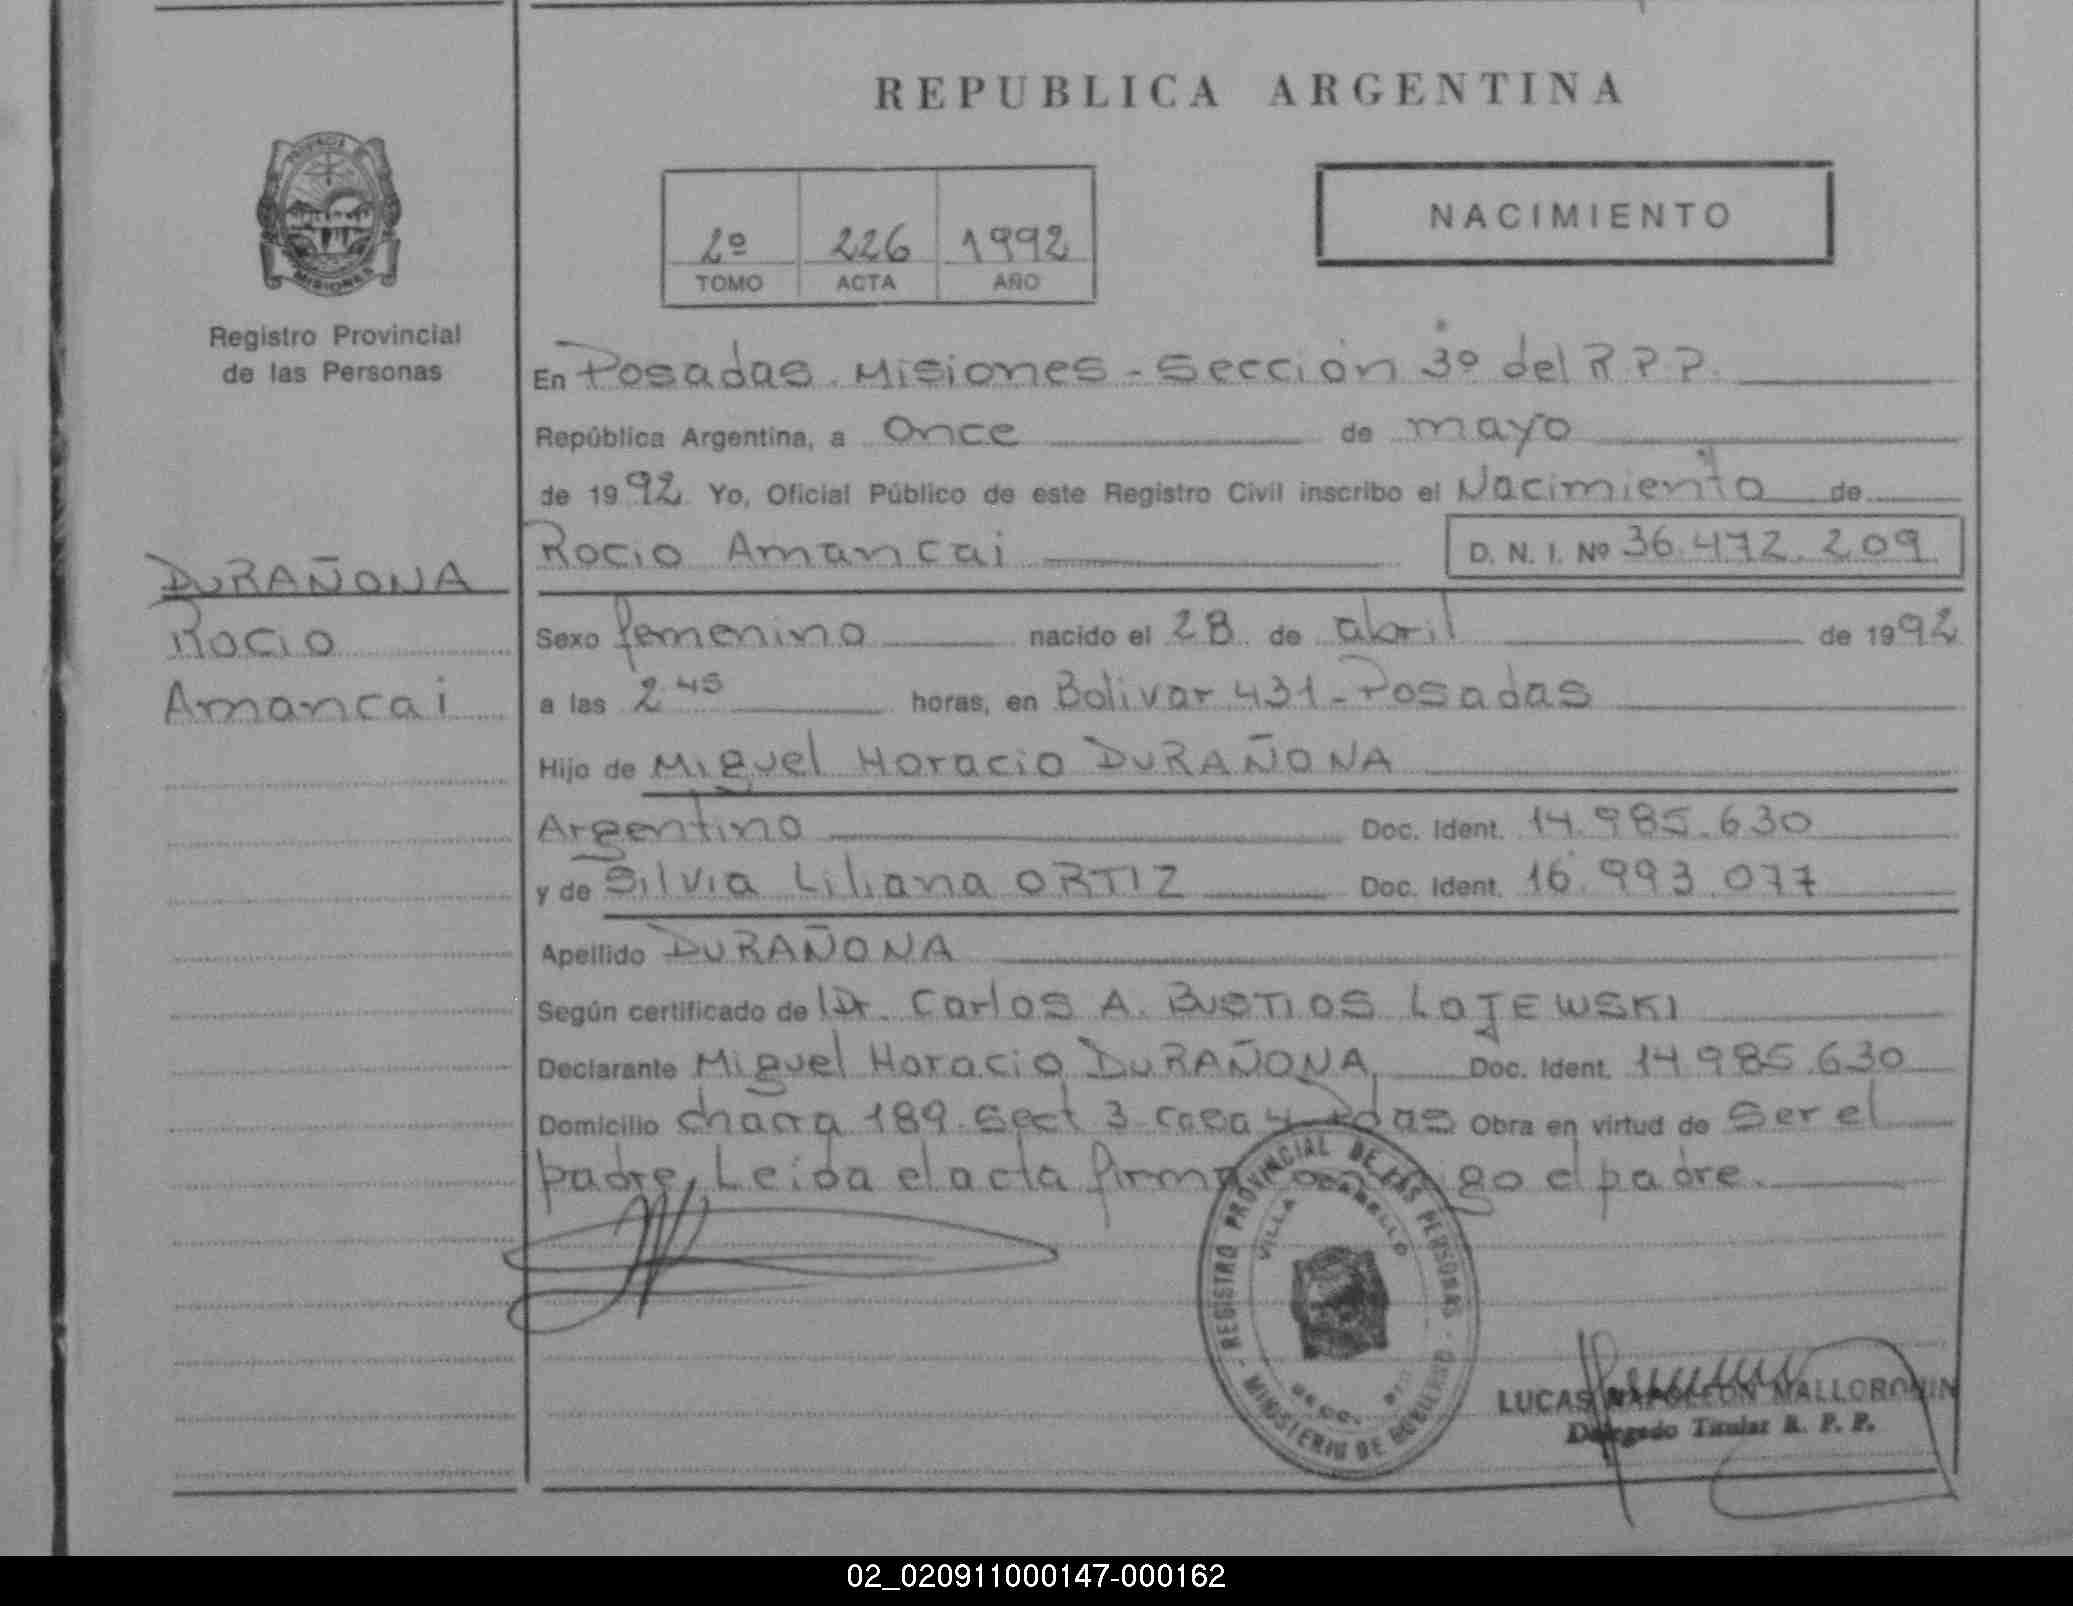 REPUBLICA ARGENTINA
PROVINCIA
MISIONES
Registro Provincial
de las Personas
2º 226 1992
TOMO ACTA AÑO
NACIMIENTO
En Posadas. Misiones - Sección 3º del R.P.P.
República Argentina, a Once de mayo
de 1992 Yo, Oficial Público de este Registro Civil inscribo el Nacimiento de
Rocio Amancai D. N. I. Nº 36.472.209
DURAÑONA
Rocio
Amancai
Sexo femenino nacido el 28 de abril de 1992
a las 2.45 horas, en Bolivar 431 - Posadas
Hijo de Miguel Horacio DURAÑONA
Argentino Doc. Ident. 14.985.630
y de Silvia Liliana ORTIZ Doc. Ident. 16.993.077
Apellido DURAÑONA
Según certificado de Dr. Carlos A. BUSTIOS LOJEWSKI
Declarante Miguel Horacio DURAÑONA Doc. Ident. 14.985.630
Domicilio chacra 189. Sect 3 casa 4 Pdas Obra en virtud de Ser el
padre, Leida el acta firma conmigo el padre.
REGISTRO PROVINCIAL DE LAS PERSONAS - MINISTERIO DE GOBIERNO -
VILLA CABELLO
LUCAS NAPOLEON MALLORQUIN
Delegado Titular R. P. P.
02_020911000147-000162